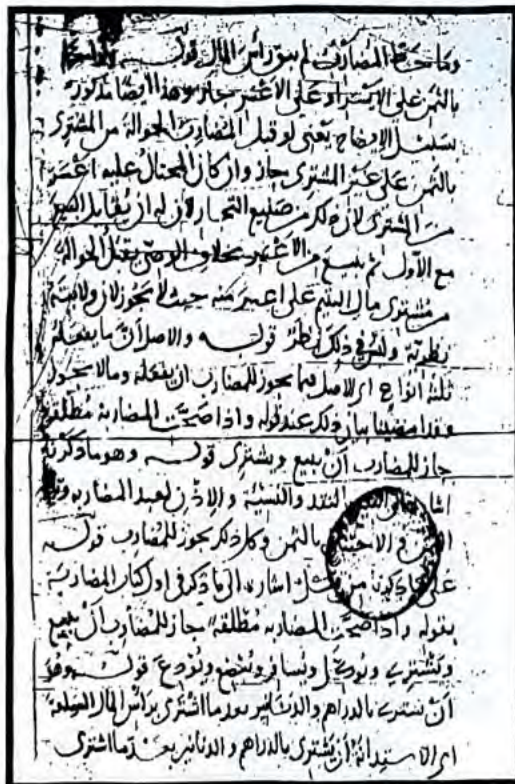 وكما حط المضارب لم يبق رأس المال قوله ولو احتال
بالثمن على الايسر او على الاعسر جاز وهذا ايضا مذكور
بسبيل الايضاح يعنى لو قبل المضارب الحوالة من المشترى
بالثمن على غير المشترى جاز وان كان المحتال عليه اعسر
من المشترى لان ذلك من صنيع التجار لان له ان يقايل البيع
مع الاول ثم يبيع من الاعسر بخلاف الوصى يقبل الحوالة
من مشترى مال اليتيم على اعسر منه حيث لا يجوز لان ولايته
نظرية وليس فى ذلك نظر قوله والاصل ان ما يفعله
ثلثة انواع اى الاصل فيما يجوز للمضارب ان يفعله وما لا يجوز
وقد مضى بيان ذلك عند قوله واذا صحت المضاربة مطلقة
جاز للمضارب ان يبيع ويشترى قوله وهو ما ذكرنا
اشارة الى النقد والنسية والاذن لعبد المضاربة
والاحتيال بالثمن وكل ذلك يجوز للمضارب قوله
على ما ذكرنا من قبل اشارة الى ما ذكر فى اول كتاب المضاربة
بقوله واذا صحت المضاربة مطلقة جاز للمضارب ان يبيع
ويشترى ويوكل ويسافر ويبضع ويودع قوله وهو
ان يشترى بالدراهم والدنانير بعد ما اشترى برأس المال السلعة
اى الاستدانة ان يشترى بالدراهم والدنانير بعد ما اشترى